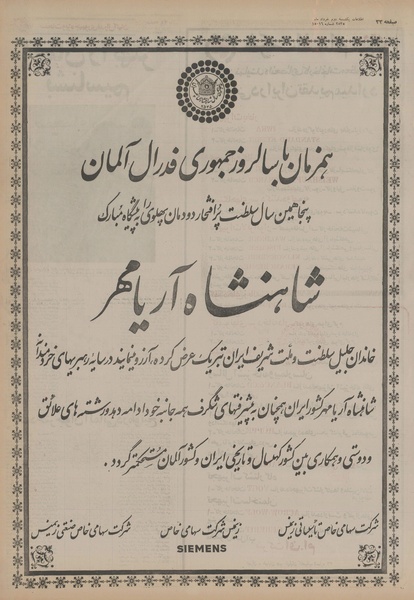 صفحه ۲۳
همزمان با سالروز جمهوری فدرال آلمان
پنجاهمین سال سلطنت پر افتخار دودمان پهلوی را به پیشگاه مبارک
شاهنشاه آریامهر
خاندان جلیل سلطنت و ملت شریف ایران تبریک عرض کرده، آرزو مینمایند در سایه رهبریهای خردمندانه
شاهنشاه آریامهر کشور ایران همچنان به پیشرفتهای شگرف همه جانبه خود ادامه دهد و رشته های علائق
و دوستی و همکاری بین کشور کهنسال و تاریخی ایران و کشور آلمان مستحکمتر گردد.
شرکت سهامی خاص تأسیساتی زیمنس
زیمنس شرکت سهامی خاص
شرکت سهامی خاص صنعتی زیمنس
SIEMENS